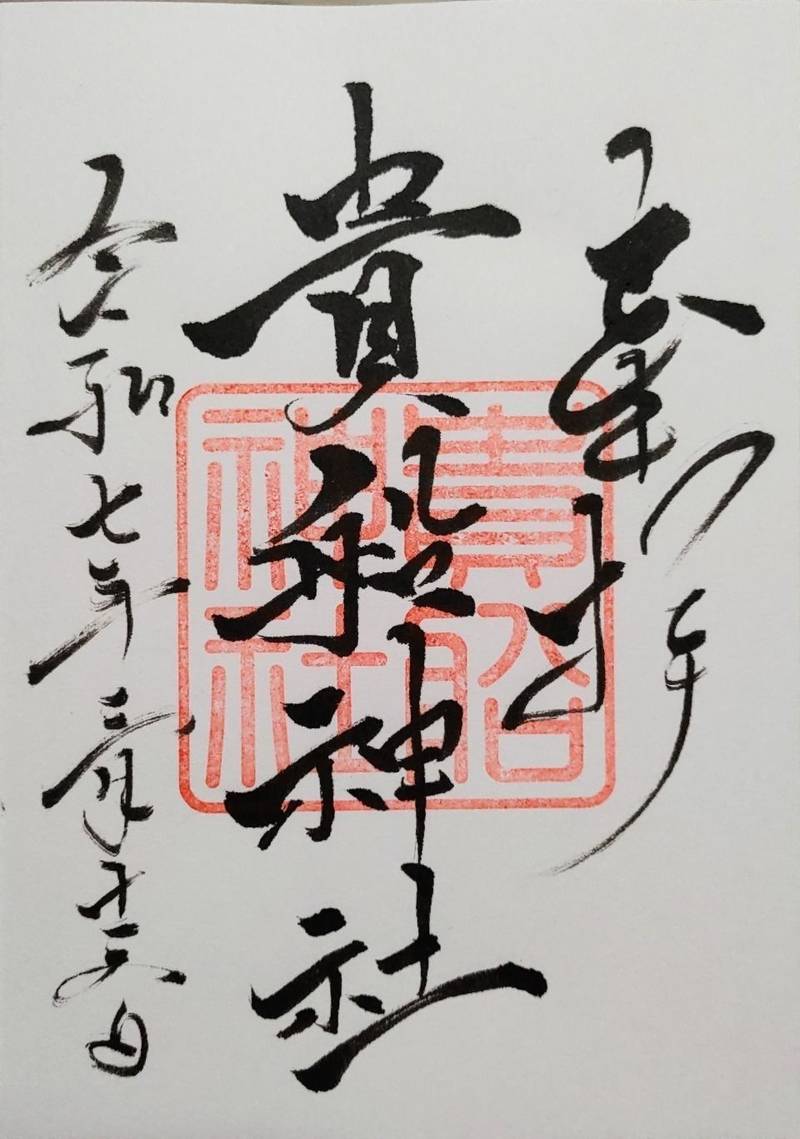 奉拝
貴船神社
令和七年三月十六日
貴船神社